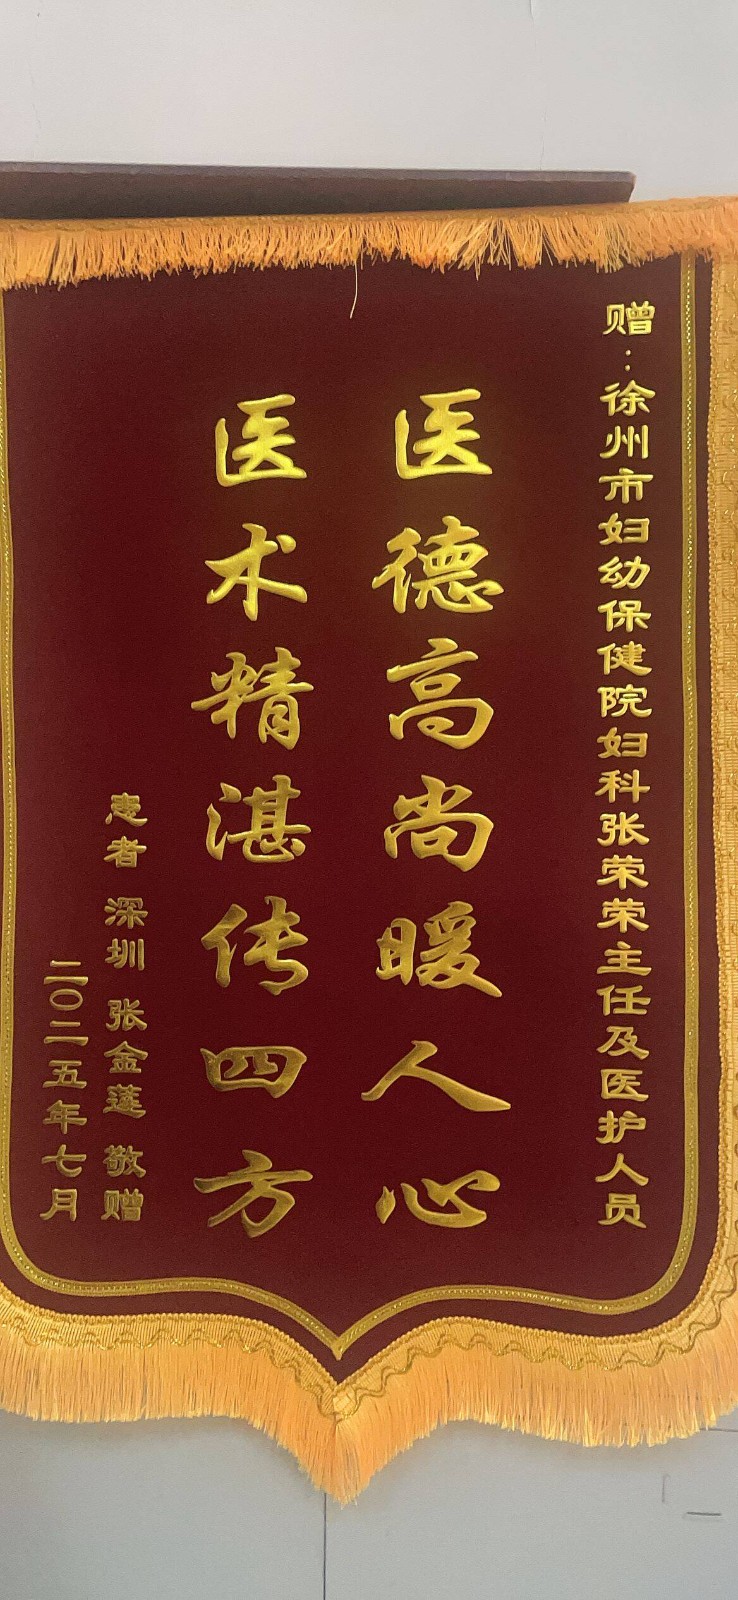 赠：徐州市妇幼保健院妇科张荣荣主任及医护人员
医德高尚暖人心
医术精湛传四方
患者 深圳 张金莲 敬赠
二〇二五年七月